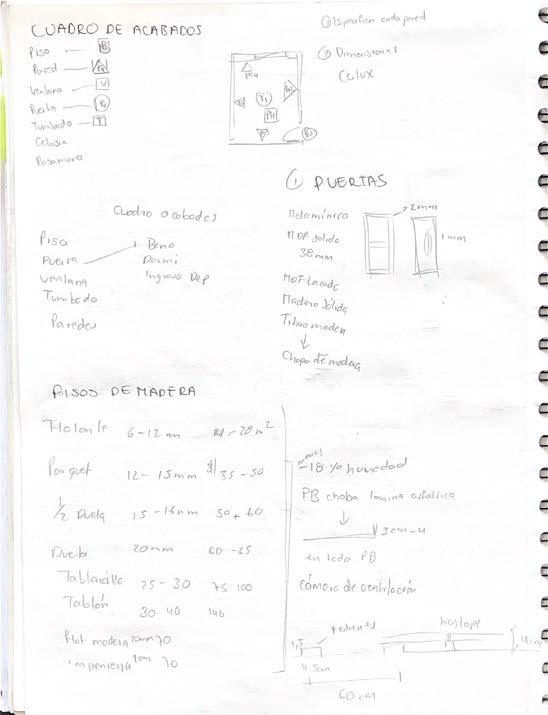 CUADRO DE ACABADOS
Piso B
Pared
Ventana V
Puerta
Tumbado T
Celosia
Pasamano
① Especificar cada pared
② Dimensiones
Celux
① PUERTAS
Melamínico
MDF solido
38 mm
MDF Lacado
Madera Sólida
Fibro madera
Chapa de madera
2mm
1 mm
Cuadro acabados
Piso
Puerta
Ventana
Tumbado
Paredes
Bano
Dormi
Ingreso Dep
PISOS DE MADERA
Flotante 6-12 mm 28 m²
Parquet 12-15mm $ 35-50
1/2 Duela 15-16mm 50 60
Duela 20mm 60-65
Tabloncillo 25-30 75 100
Tablón 30 40 140
Flot madera 70
70
menos
-18 % humedad
PB chova lamina asfaltica
3cm-4
en todo PB
cámara de ventilación
4.5cm
60 cm